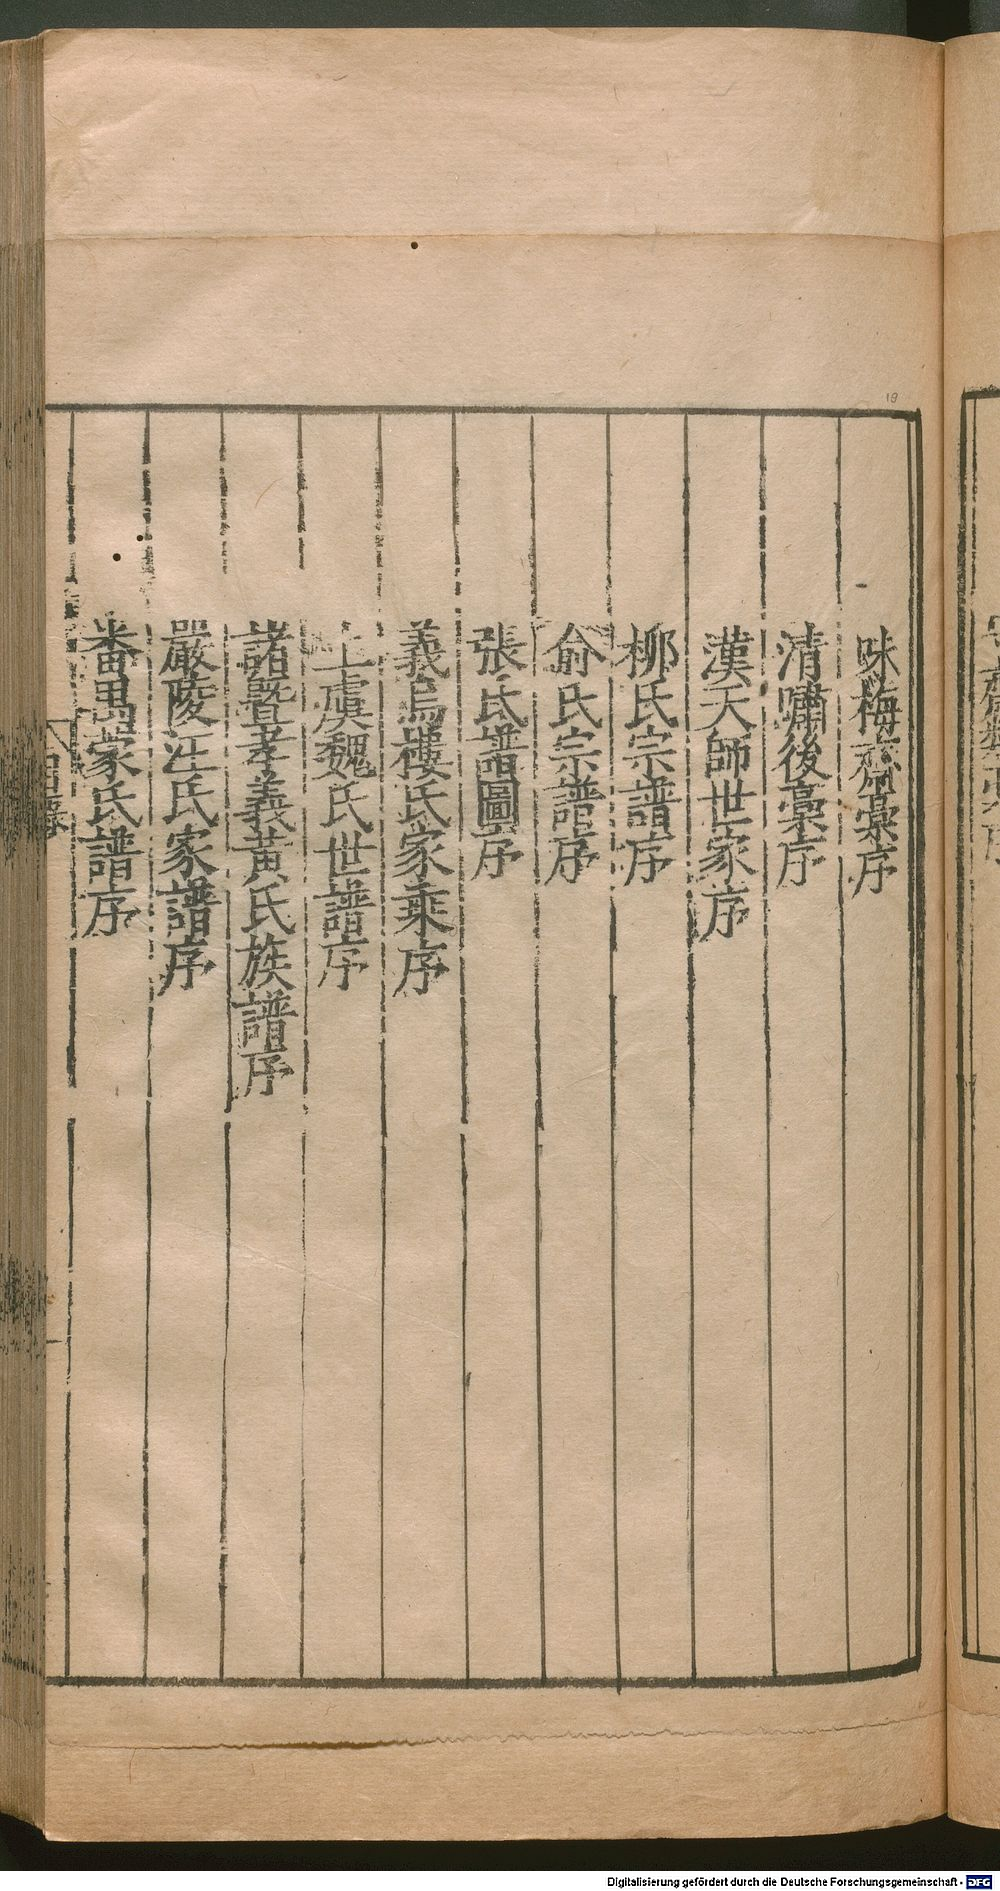 味梅齋藁序
清嘯後藁序
漢天師世家序
柳氏宗譜序
俞氏宗譜序
張氏譜圖序
義烏樓氏家乘序
上虞魏氏世譜序
諸曁孝義黃氏族譜序
嚴陵汪氏家譜序
番禺蒙氏譜序
目錄
19
Digitalisierung gefördert durch die Deutsche Forschungsgemeinschaft - DFG